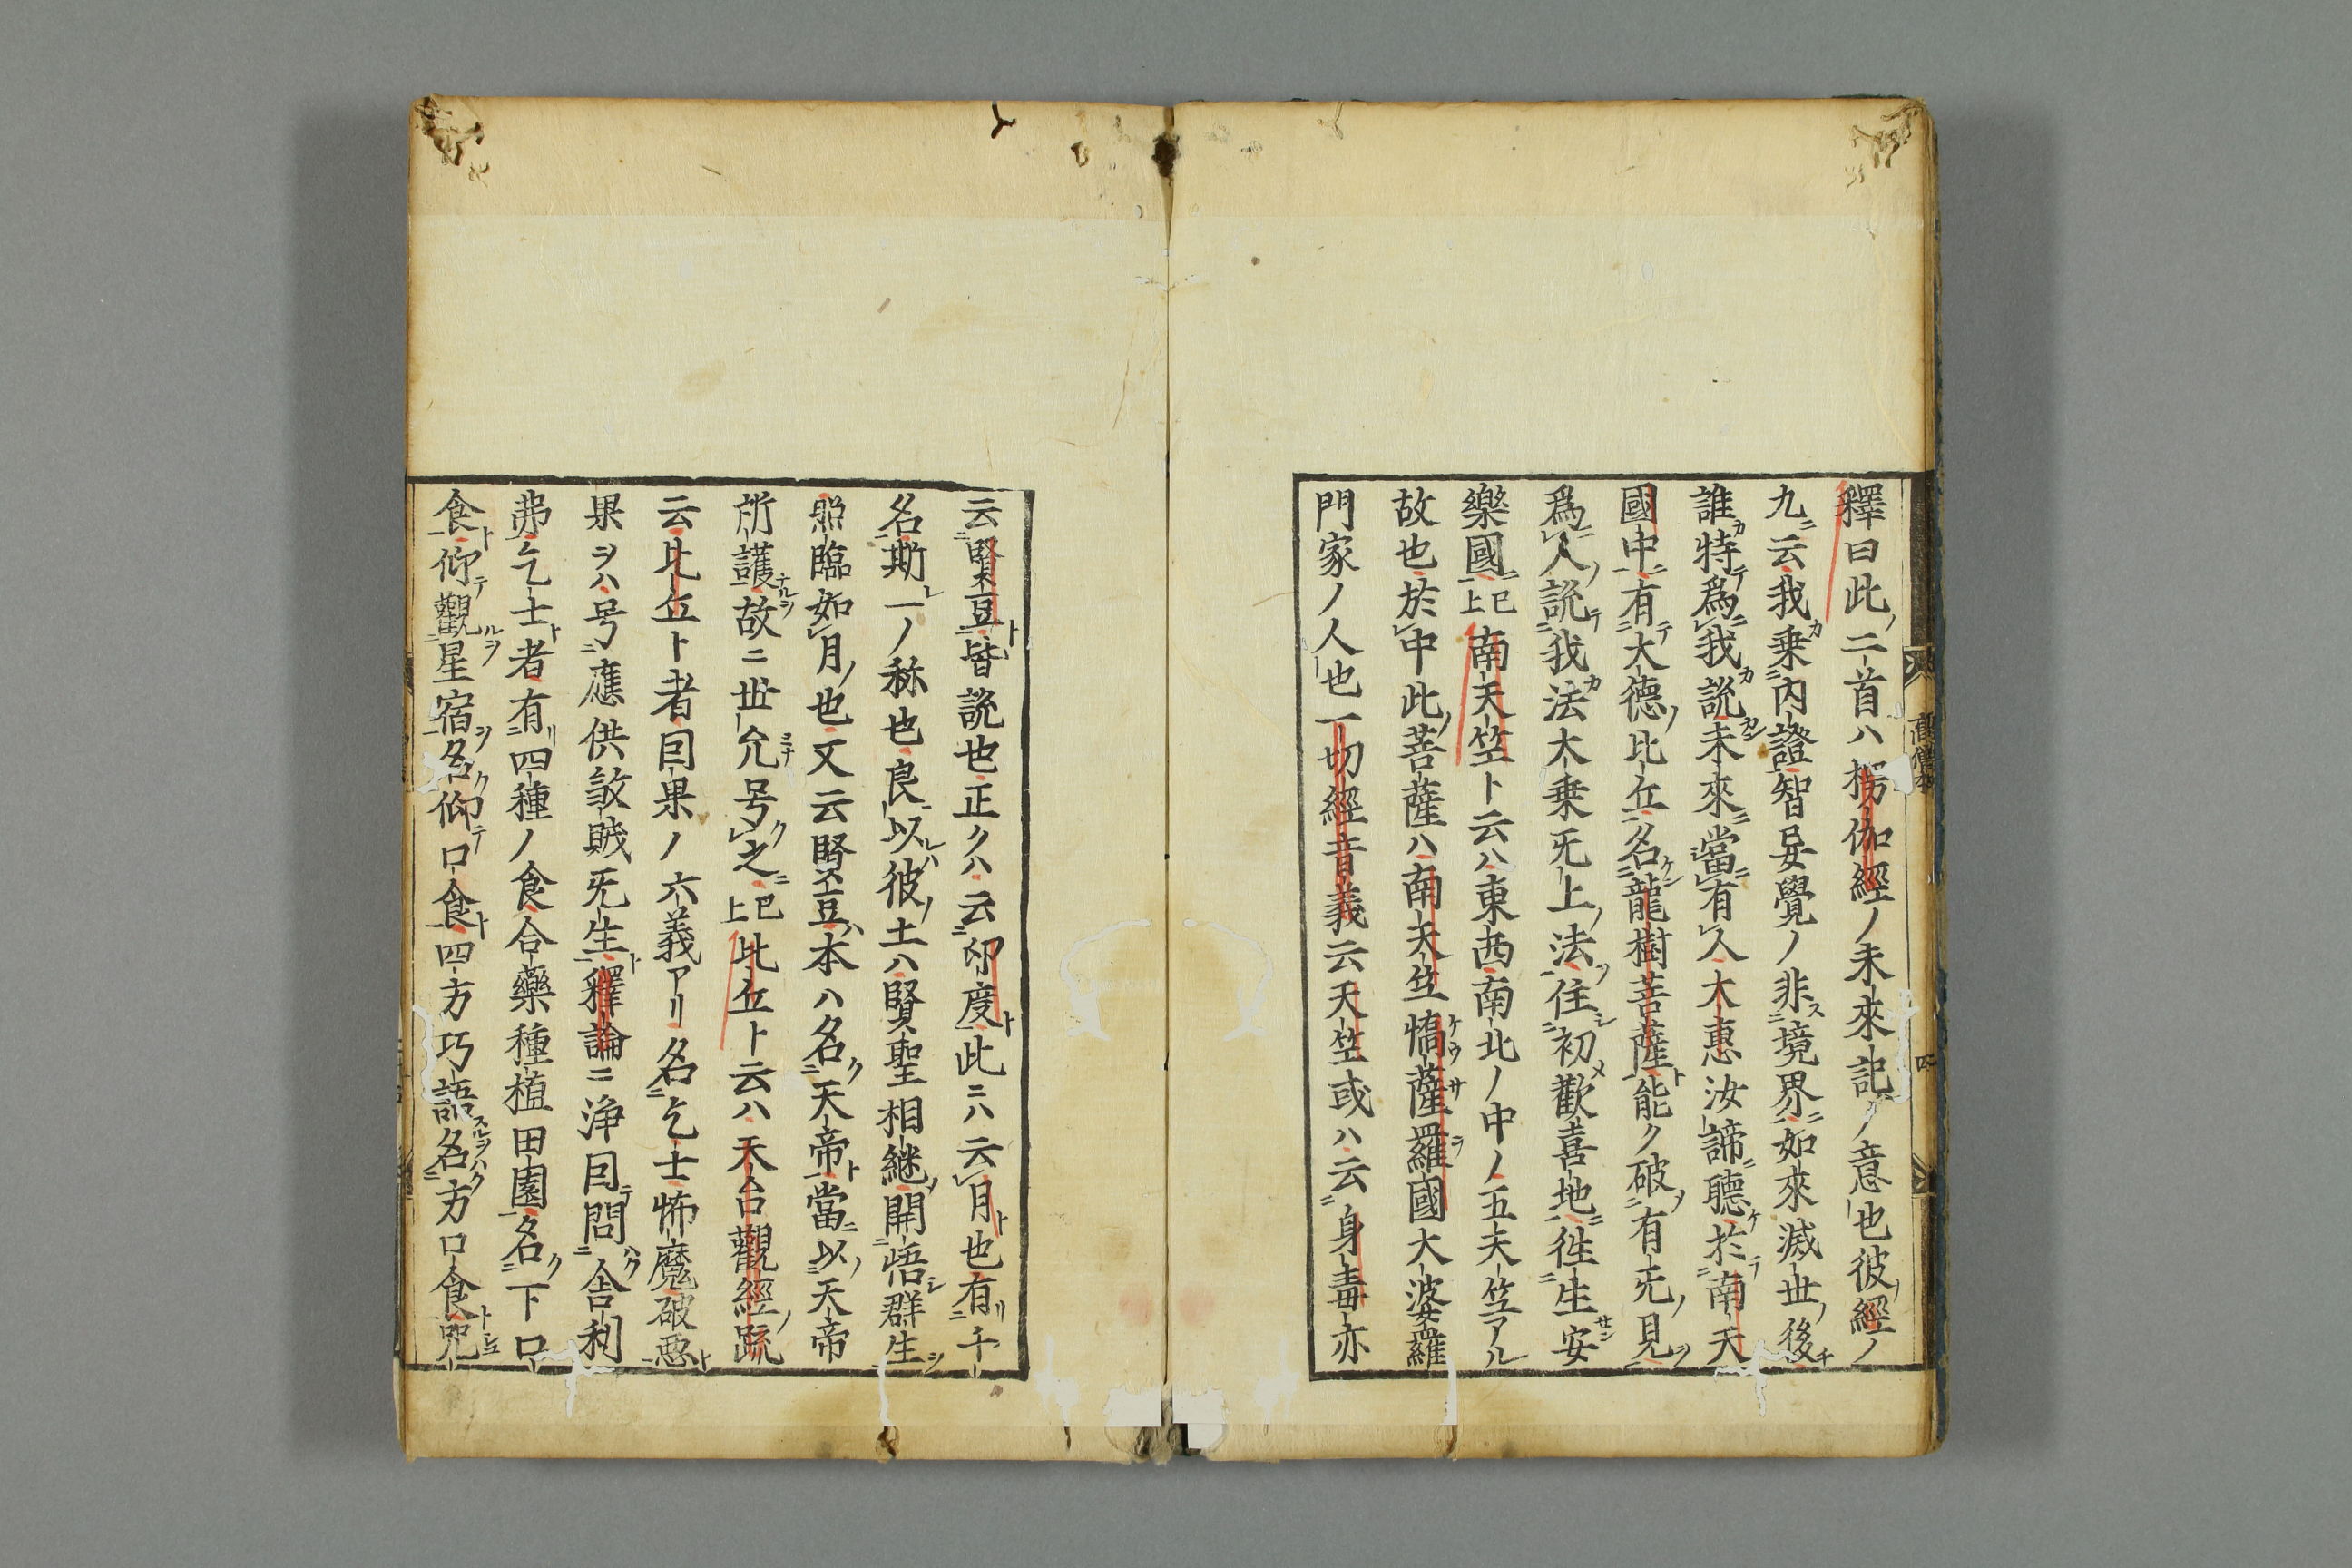 釋曰此ノ二首ハ楞伽經ノ未來記ノ意也彼經ノ
九ニ云我カ乘内證智妄覺ノ非ス境界ニ如來滅世ノ後チ
誰カ特テ爲ニ我カ說カン未來ニ當ニ有人大惠汝諦ニ聽ケ於テ南天
國中ニ有テ大德ノ比丘名ケン龍樹菩薩ト能ク破ヲ有无ノ見ヲ
爲ニ人ノ說テ我カ法大乘无上ノ法ヲ住シ初メ歡喜地ニ徃生サン安
樂國ニ已上南天竺ト云ハ東西南北ノ中ノ五天竺アル
故也於中此ノ菩薩ハ南天竺憍ケウ薩サ羅ラ國大婆羅
門家ノ人也一切經音義云天竺或ハ云身毒亦
云賢豆ト皆訛也正クハ云印度ト此ニハ云月ト也有リ千
名斯レ一ノ称也良ニ以レハ彼ノ土ハ賢聖相継ソ開悟シ群生シ
照臨如月ノ也又云賢豆ハ本ハ名ク天帝ト當ニ以ノ天帝
所護ナルヲ故ニ世允ミナ号ク之ニ已上比丘ト云ハ天台觀經ノ疏
云比丘ト者因果ノ六義アリ名乞士怖魔破惡ト
果ヲハ号ニ應供敨賊无生ト釋論ニ淨目テ問ハク舍利
弗乞士ト者有リ四種ノ食合藥種植田園名ク下口
食ト仰テ觀ルヲ星宿ヲ名ク仰テ口食ト四方巧語スルヲハ名ク方口食ト咒
高僧
四